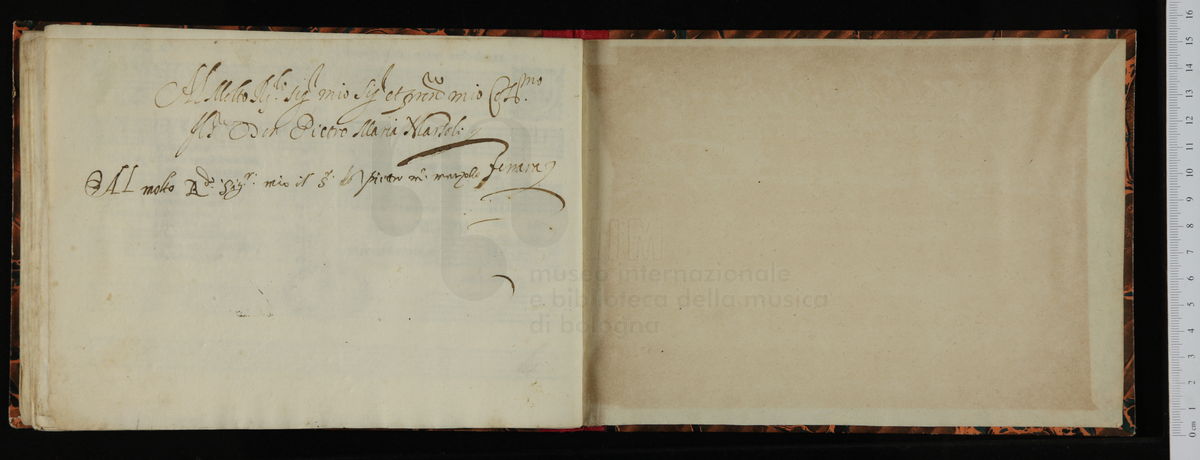 Al Molto Ill.re Sig.r mio Sig.r et mio Co.mo
Il Sig.r Don Pietro Maria Marsoli
Al molto R.do Sig.r mio il S.r Pietro m.a marzole ferrara
museo internazionale
e biblioteca della musica
di bologna
0 cm 1 2 3 4 5 6 7 8 9 10 11 12 13 14 15 16